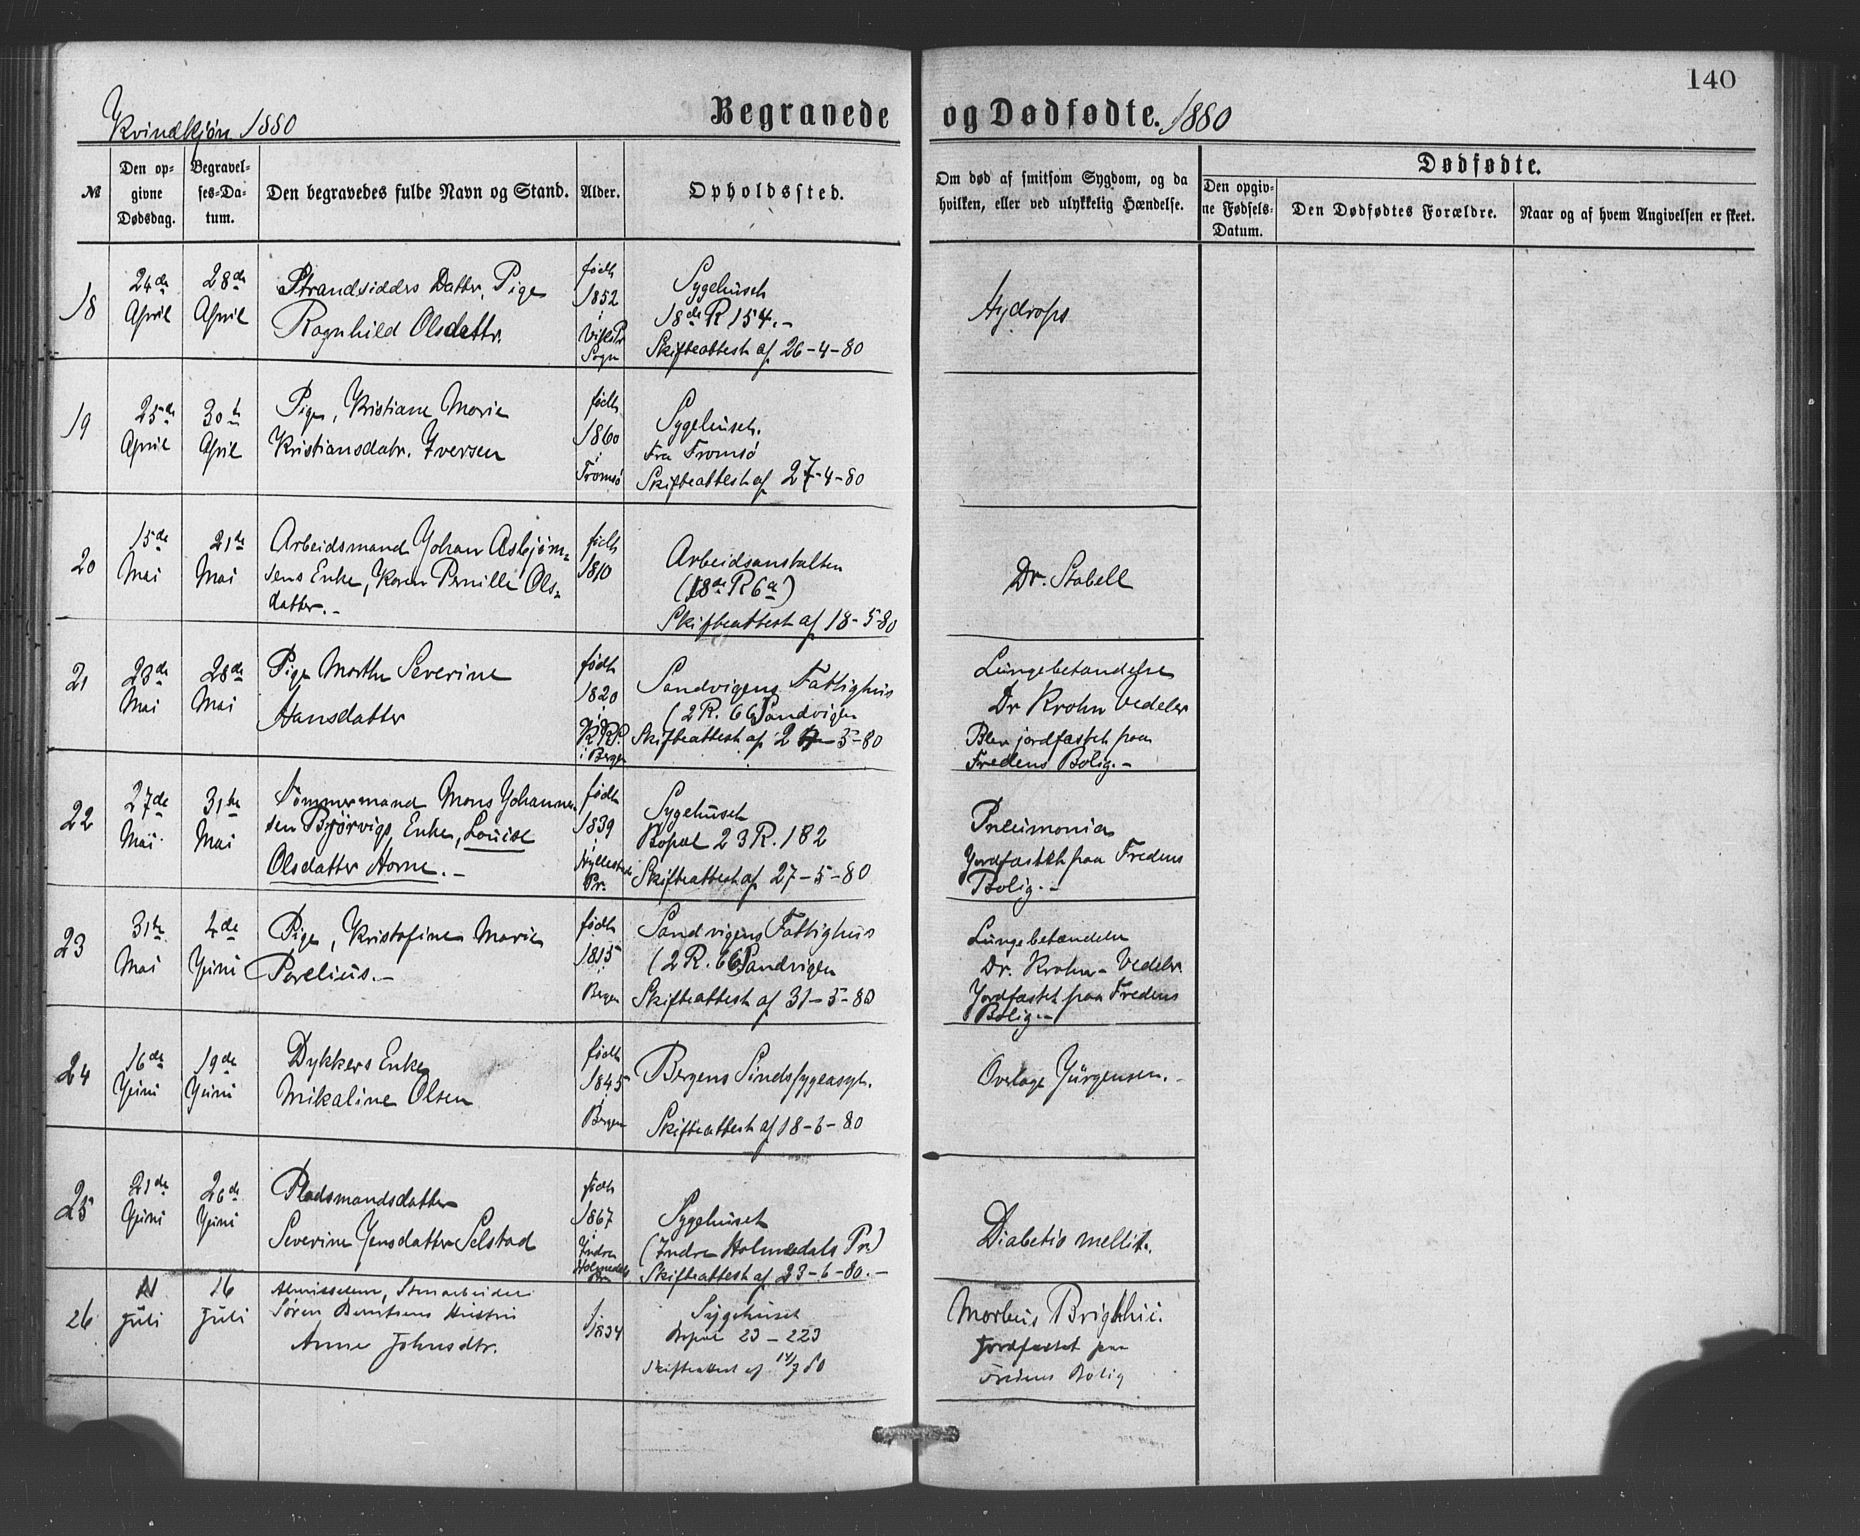 140
Kvindkjøn 1880
Begravede og Dødfødte. 1880
№
Den op-
givne
Dødsdag.
Begravel-
ses-Da-
tum.
Den begravedes fulde Navn og Stand.
Alder.
Opholdssted.
Om død af smitsom Sygdom, og da
hvilken, eller ved ulykkelig Hændelse.
Dødfødte.
Den opgiv-
ne Fødsels-
Datum.
Den Dødfødtes Forældre.
Naar og af hvem Angivelsen er skeet.
18
24de
April
28de
April
Strandsidders Datter, Pige
Ragnhild Olsdattr.
født
1852
i
Sogn
Sygehuset
18de R 154.-
Skifteattest af 26-4-80
Hydrops
19
25de
April
30te
April
Pige, Kristiane Marie
Kristiansdatr. Iversen
født
1860
i
Tromsø
Sygehuset.
Fra Tromsø
Skifteattest af 27-4-80
20
15de
Mai
21de
Mai
Arbeidsmand Johan Asbjørn-
sens Enke, Karen Pernille Ols-
datter.-
født
1810
Arbeidsanstalten
(18de R 6a)
Skifteattest af 18-5-80
Dr. Stabell
21
23de
Mai
28de
Mai
Pige Marthe Severine
Hansdatter
født
1820
i
i Bergen
Sandvigens Fattighus
(2 R. 66) Sandvigen
Skifteattest af 2 -5-80
Lungebetændelse
Dr Krohn Vedeler
Blev jordfæstet paa
Fredens Bolig.-
22
27de
Mai
31te
Mai
Tømmermand Mons Johanne-
sen Bjørvigs Enke, Louise
Olsdatter Horne.-
født
1839
i
Hyllestad
Pr.
Sygehuset
Bopæl 23 R. 182
Skifteattest af 27-5-80
Pneumonia
Jordfæstet paa Fredens
Bolig.-
23
31te
Mai
4de
Juni
Pige, Kristofine Marie
Perelius.-
født
1815
i
Bergen
Sandvigens Fattighus
(2 R. 66) Sandvigen
Skifteattest af 31-5-80
Lungebetændelse
Dr. Krohn-Vedeler
Jordfæstet paa Fredens
Bolig.-
24
16de
Juni
19de
Juni
Dykkers Enke
Mikaline Olsen
født
1845
i
Bergen
Bergens Sindssygeasyl.
Skifteattest af 18-6-80
Overlæge Jürgensen.-
25
21de
Juni
26de
Juni
Pladsmandsdatter
Severine Jensdatter Selstad
født
1867
i
Indre
Holmedals
Pr.
Sygehuset
(Indre Holmedals Pr)
Skifteattest af 23-6-80.-
Diabetis mellit.
26
11
Juli
16
Juli
Almisselem, Stenarbeider
Søren Berntsens Hustru
Anne Johnsdtr.
f
1834
Sygehuset
Bopæl 23-223
Skifteattest af 14/7 80
Morbus Brightii.
Jordfæstet paa
Fredens Bolig